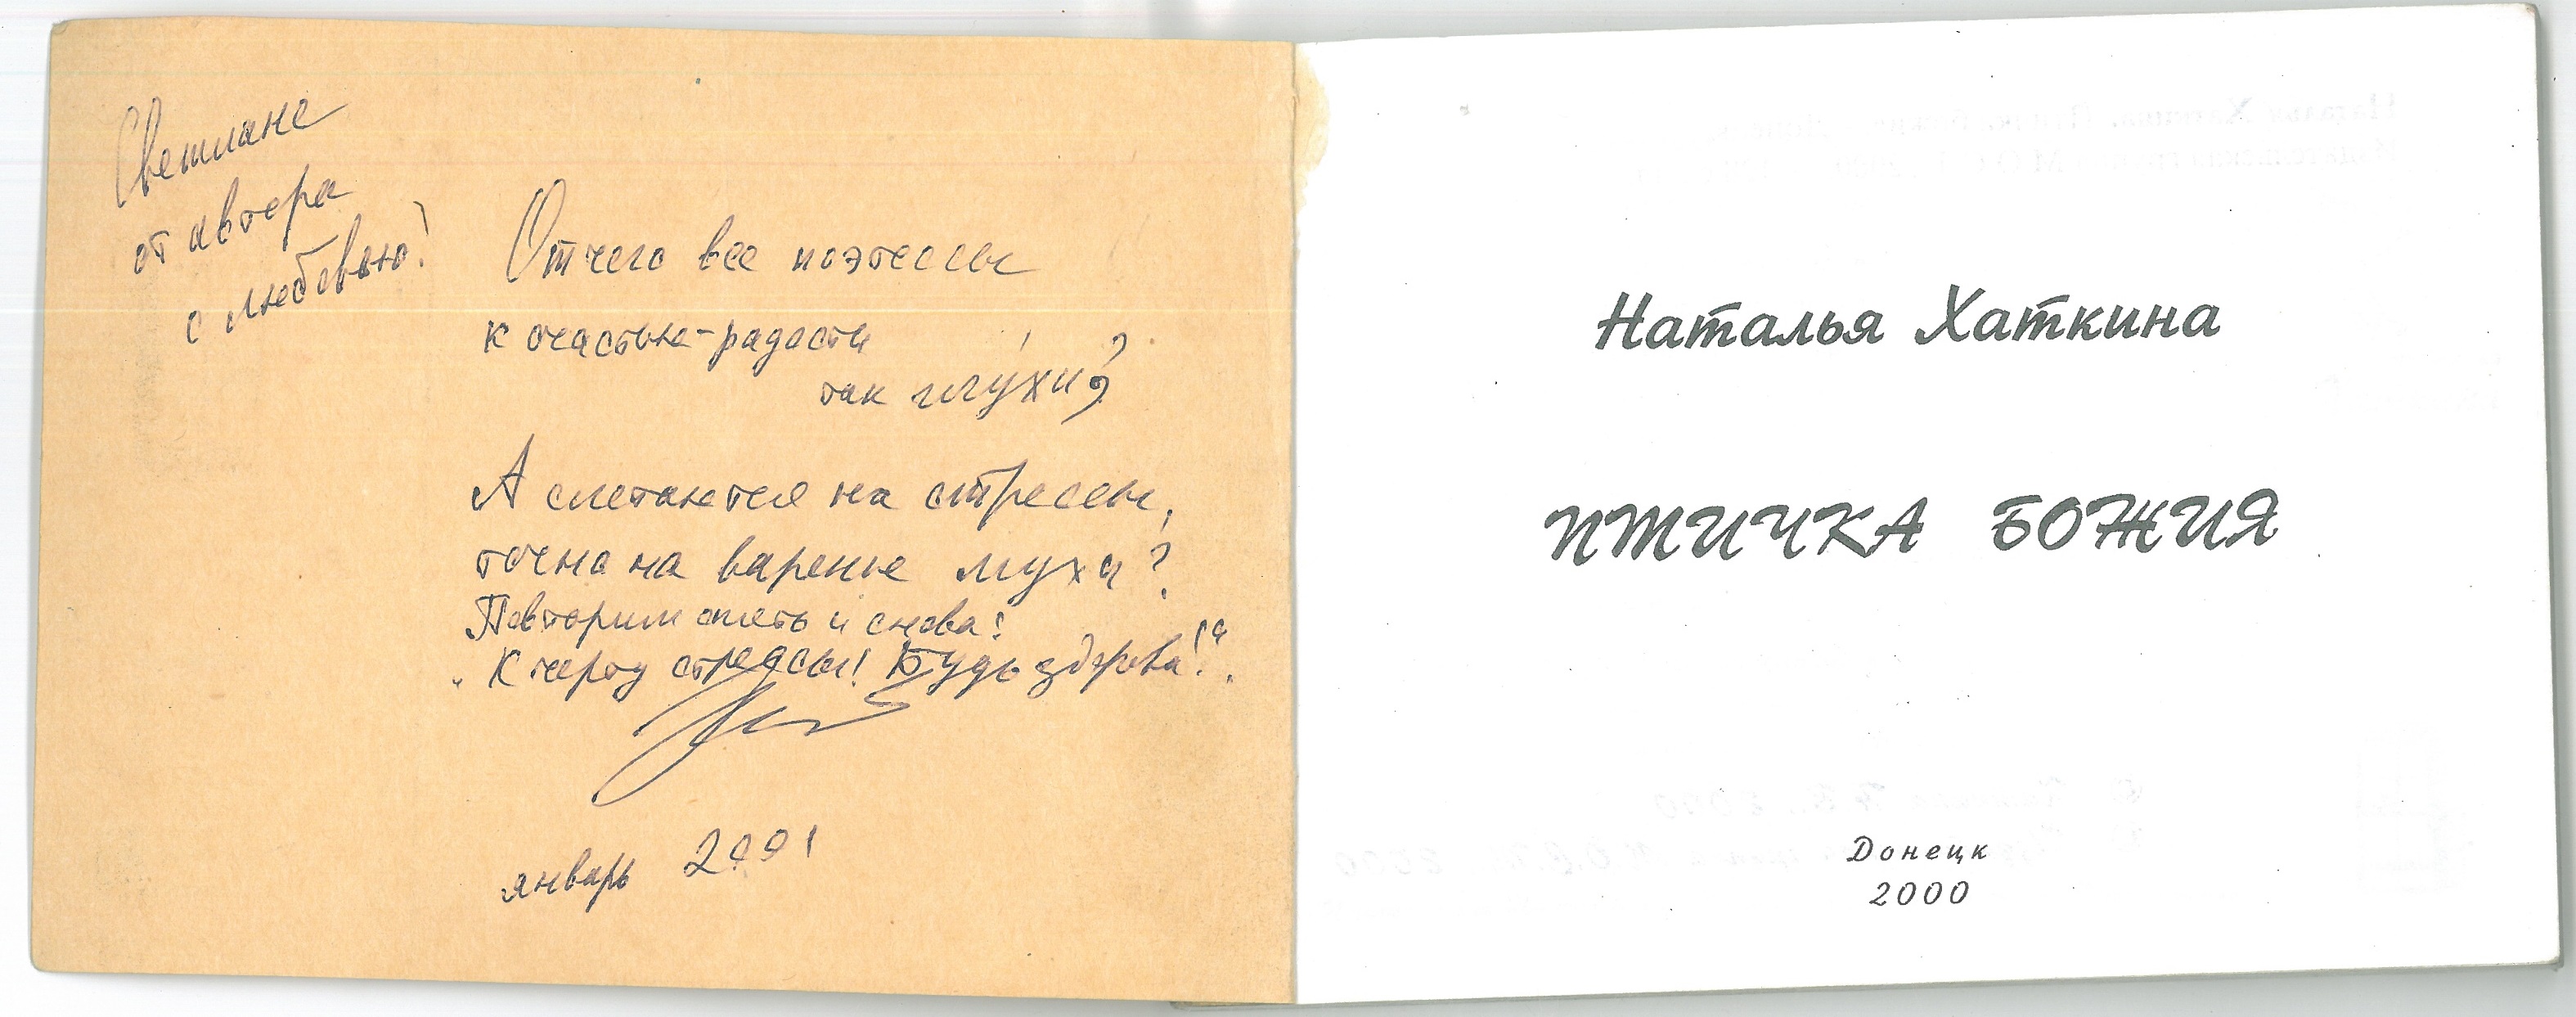 Светлане
от автора
с любовью!
Отчего все поэтессы
к счастью-радости
так глу́хи?
А слетаются на стрессы,
точно на варенье мухи?
Повторим опять и снова:
"К черту стрессы! Будь здорова!".
январь 2001
Наталья Хаткина
ПТИЧКА БОЖИЯ
Донецк
2000